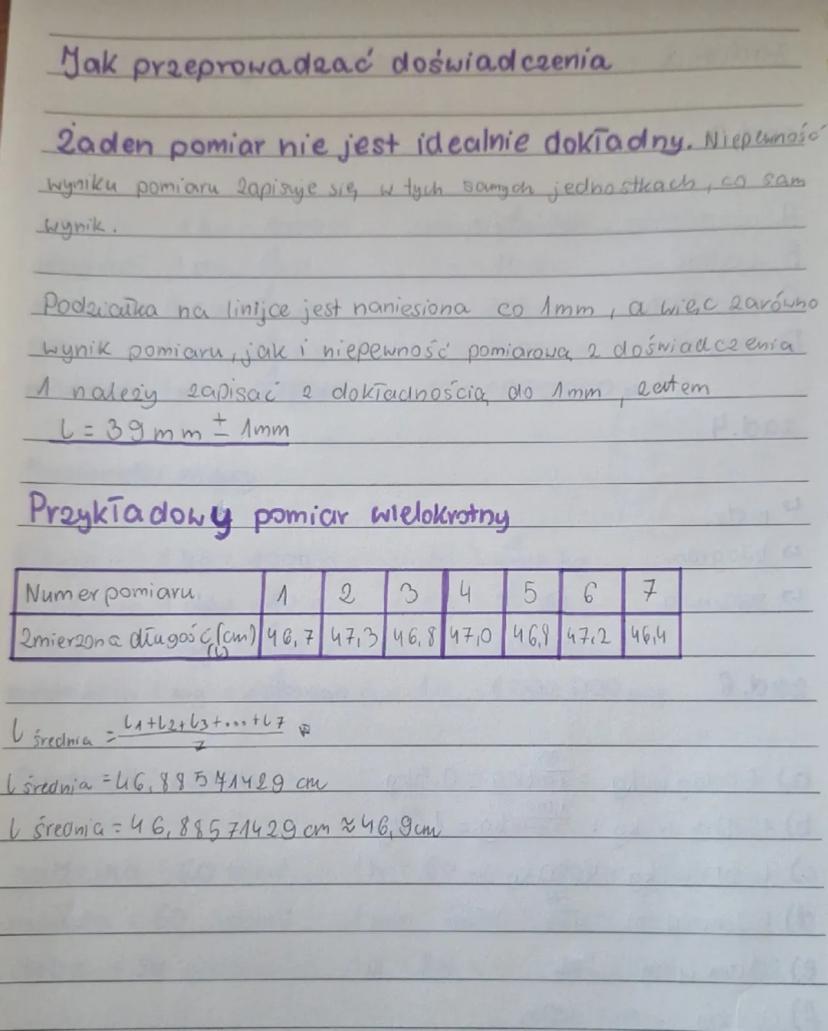 Jak przeprowadzać doświadczenia
Żaden pomiar nie jest idealnie dokładny. Niepewność
wyniku pomiaru zapisuje się w tych samych jednostkach, co sam
wynik.
Podziałka na linijce jest naniesiona co 1mm, a więc zarówno
wynik pomiaru, jak i niepewność pomiarową z doświadczenia
1 należy zapisać z dokładnością do 1mm, zatem
l = 39 mm ± 1mm
Przykładowy pomiar wielokrotny
Numer pomiaru 1 2 3 4 5 6 7
Zmierzona długość (cm) (l) 46,7 47,3 46,8 47,0 46,8 47,2 46,4
l średnia = (l1+l2+l3+...+l7)/7
l średnia = 46,88571429 cm
l średnia = 46,88571429 cm ≈ 46,9cm